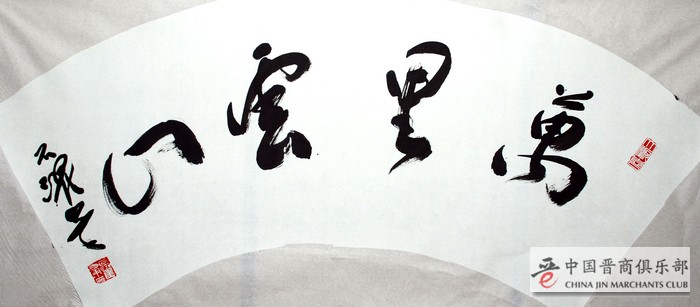 萬里雲山
晋 中国晋商俱乐部
CHINA JIN MARCHANTS CLUB